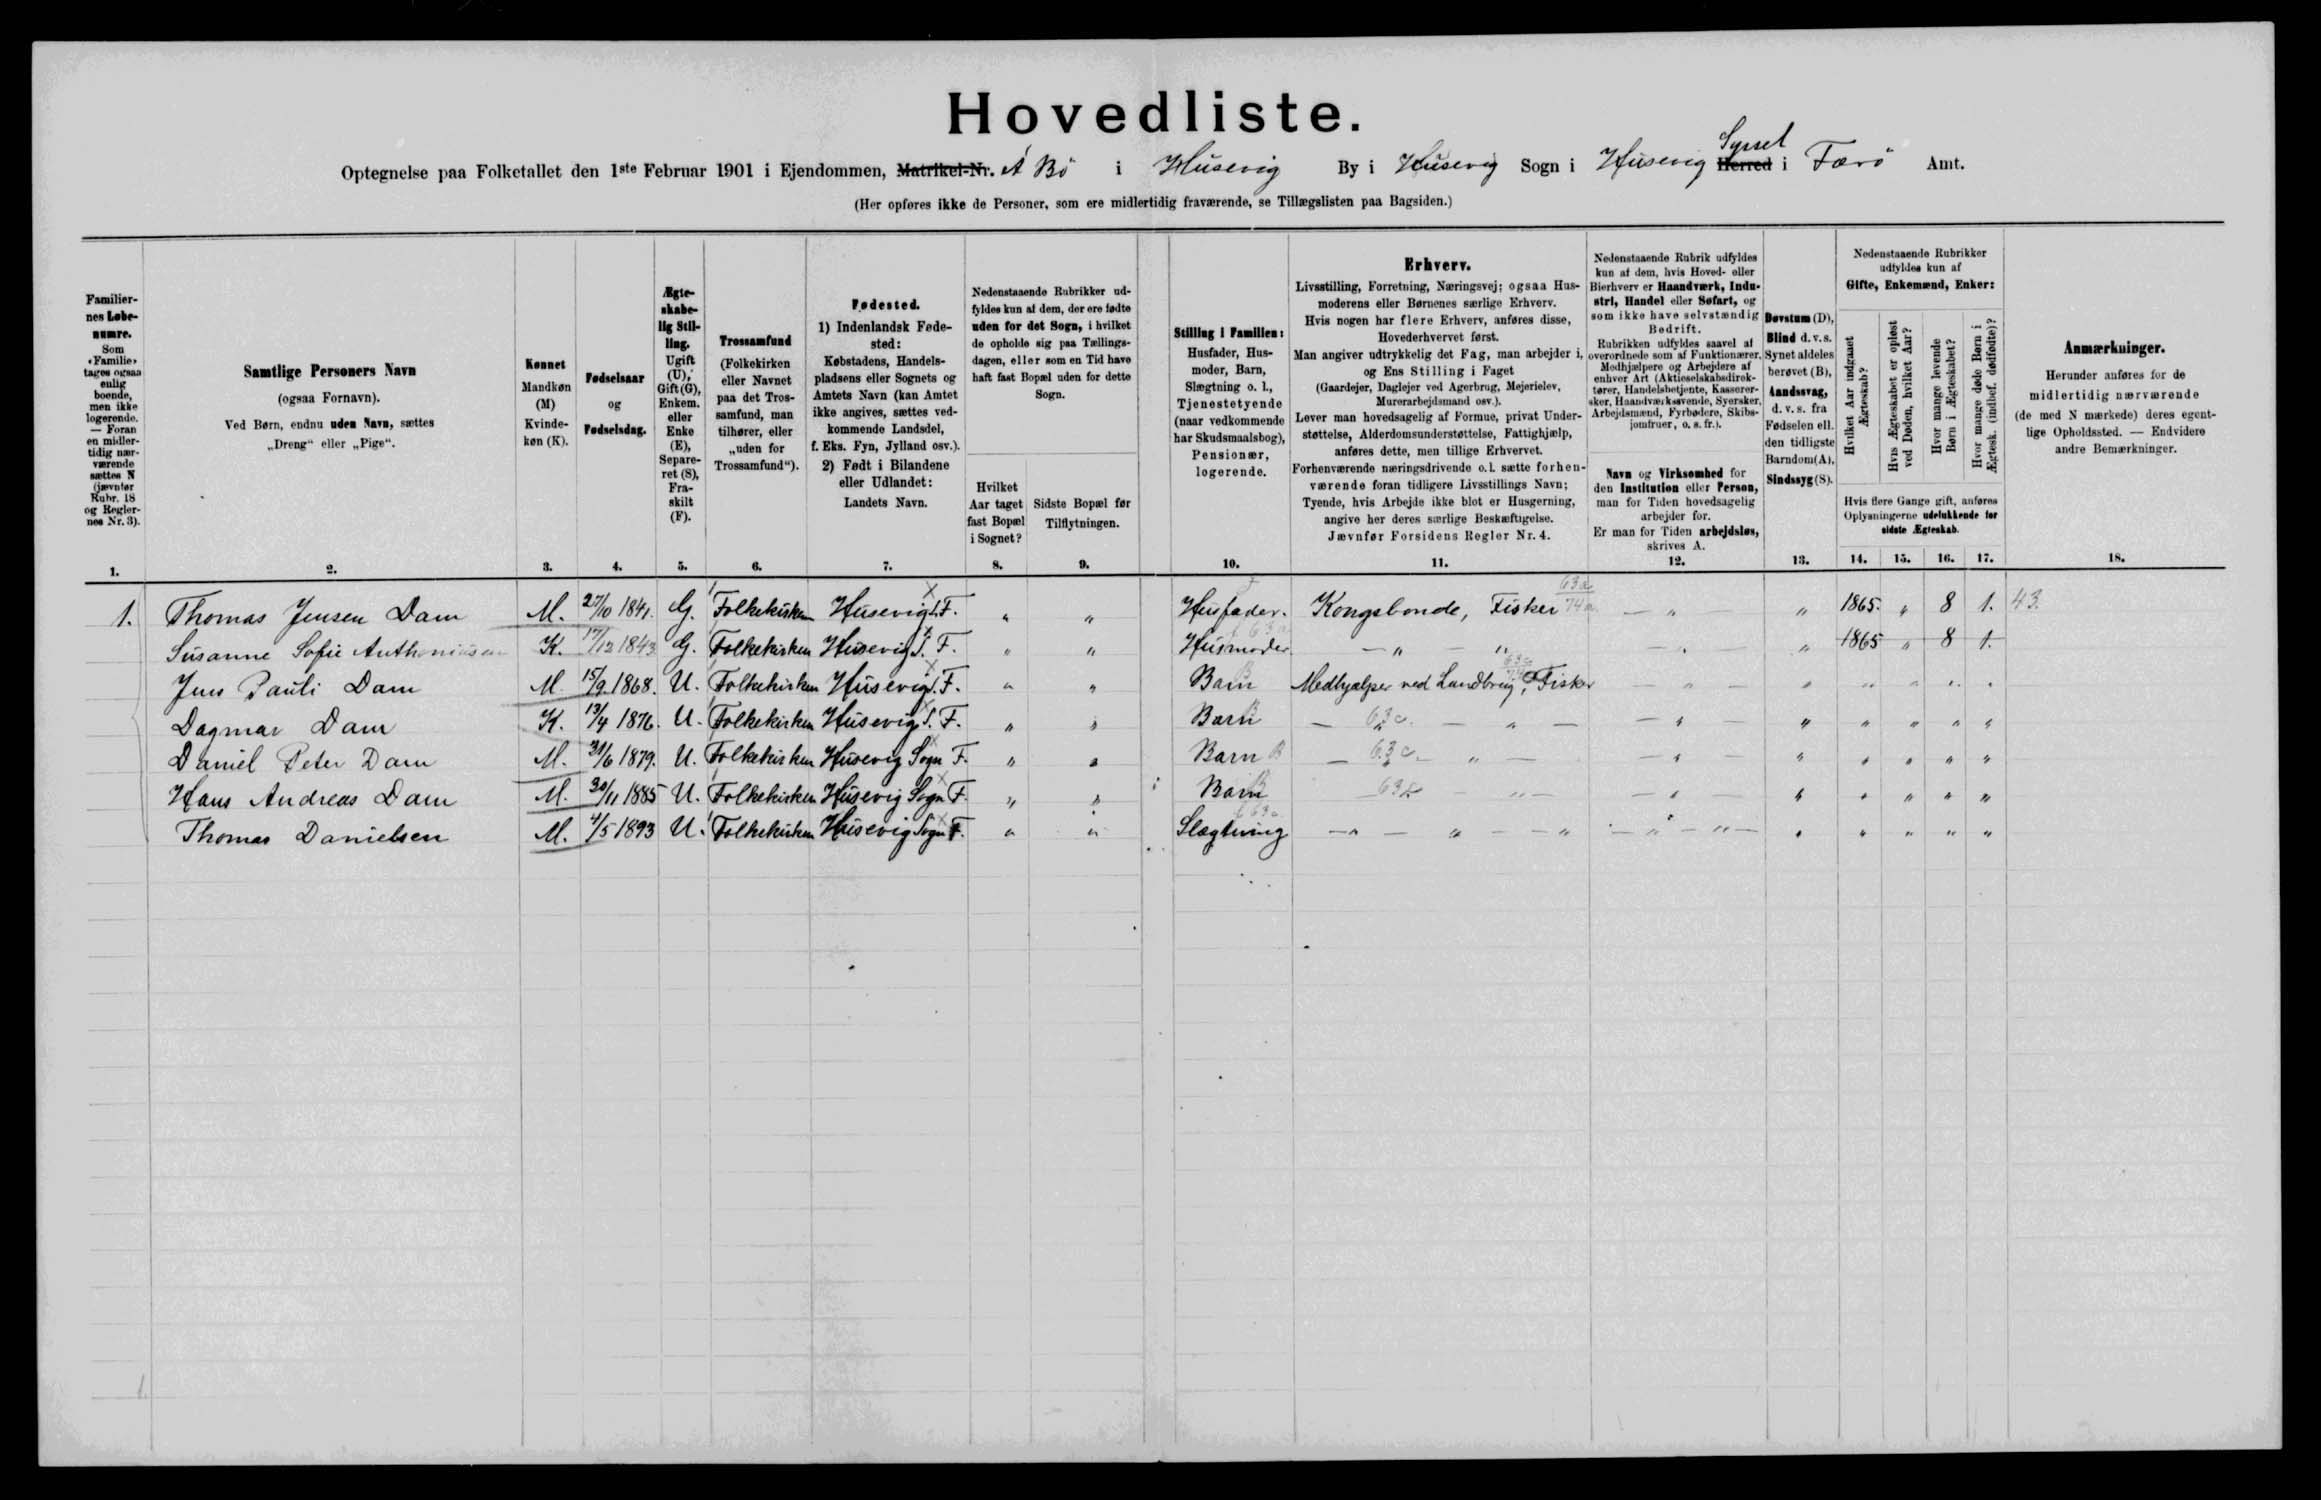 Hovedliste.
Syssel
Optegnelse paa Folketallet den 1ste Februar 1901 i Ejendommen, Matrikel-Nr. Á Bö i Husevig By i Husevig Sogn i Husevig Herred i Færö Amt.
(Her opføres ikke de Personer, som ere midlertidig fraværende, se Tillægslisten paa Bagsiden.)
Familiernes Løbenumre.
Som «Familie» tages ogsaa enlig boende, men ikke logerende. — Foran en midlertidig nærværende sættes N (jævnfør Rubr. 18 og Reglernes Nr. 3).
1.
Samtlige Personers Navn
(ogsaa Fornavn).
Ved Børn, endnu uden Navn, sættes
„Dreng“ eller „Pige“.
2.
Kønnet
Mandkøn (M)
Kvindekøn (K).
3.
Fødselsaar
og
Fødselsdag.
4.
Ægteskabelig Stilling.
Ugift (U), Gift (G), Enkem. eller Enke (E), Separeret (S), Fraskilt (F).
5.
Trossamfund
(Folkekirken eller Navnet paa det Trossamfund, man tilhører, eller „uden for Trossamfund“).
6.
Fødested.
1) Indenlandsk Fødested:
Købstadens, Handelspladsens eller Sognets og Amtets Navn (kan Amtet ikke angives, sættes vedkommende Landsdel, f. Eks. Fyn, Jylland osv.).
2) Født i Bilandene eller Udlandet:
Landets Navn.
7.
Nedenstaaende Rubrikker udfyldes kun af dem, der ere fødte uden for det Sogn, i hvilket de opholde sig paa Tællingsdagen, eller som en Tid have haft fast Bopæl uden for dette Sogn.
Hvilket Aar taget fast Bopæl i Sognet?
8.
Sidste Bopæl før Tilflytningen.
9.
Stilling i Familien:
Husfader, Husmoder, Barn, Slægtning o. l., Tjenestetyende (naar vedkommende har Skudsmaalsbog), Pensionær, logerende.
10.
Erhverv.
Livsstilling, Forretning, Næringsvej; ogsaa Husmoderens eller Børnenes særlige Erhverv.
Hvis nogen har flere Erhverv, anføres disse, Hovederhvervet først.
Man angiver udtrykkelig det Fag, man arbejder i, og Ens Stilling i Faget
(Gaardejer, Daglejer ved Agerbrug, Mejerielev, Murerarbejdsmand osv.).
Lever man hovedsagelig af Formue, privat Understøttelse, Alderdomsunderstøttelse, Fattighjælp, anføres dette, men tillige Erhvervet.
Forhenværende næringsdrivende o.l. sætte forhenværende foran tidligere Livsstillings Navn;
Tyende, hvis Arbejde ikke blot er Husgerning, angive her deres særlige Beskæftigelse.
Jævnfør Forsidens Regler Nr. 4.
11.
Nedenstaaende Rubrik udfyldes kun af dem, hvis Hoved- eller Bierhverv er Haandværk, Industri, Handel eller Søfart, og som ikke have selvstændig Bedrift.
Rubrikken udfyldes saavel af overordnede som af Funktionærer, Medhjælpere og Arbejdere af enhver Art (Aktieselskabsdirektører, Handelsbetjente, Kasserersker, Haandværkssvende, Syersker, Arbejdsmænd, Fyrbødere, Skibsjomfruer, o. s. fr.).
Navn og Virksomhed for den Institution eller Person, man for Tiden hovedsagelig arbejder for.
Er man for Tiden arbejdsløs, skrives A.
12.
Døvstum (D), Blind d. v. s. Synet aldeles berøvet (B), Aandssvag, d. v. s. fra Fødselen ell. den tidligste Barndom (A), Sindssyg (S).
13.
Nedenstaaende Rubrikker udfyldes kun af
Gifte, Enkemænd, Enker:
Hvilket Aar indgaaet Ægteskab?
Hvis Ægteskabet er opløst ved Døden, hvilket Aar?
Hvor mange levende Børn i Ægteskabet?
Hvor mange døde Børn i Ægtesk. (indbef. dødfødte)?
Hvis flere Gange gift, anføres Oplysningerne udelukkende for sidste Ægteskab.
14. 15. 16. 17.
Anmærkninger.
Herunder anføres for de midlertidig nærværende (de med N mærkede) deres egentlige Opholdssted. — Endvidere andre Bemærkninger.
18.
1. Thomas Jensen Dam M. 27/10 1841. G. Folkekirken Husevig S. F. " " Husfader. Kongsbonde, Fisker 63a 74a — " — " 1865. " 8 1. 43.
Susanne Sofie Anthoniusen K. 17/12 1843 G. Folkekirken Husevig S. F. " " Husmoder — " — " — " — " 1865 " 8 1.
Jens Pauli Dam M. 15/9 1868. U. Folkekirken Husevig S. F. " " Barn Medhjælper ved Landbrug, Fisker " — " " " " "
Dagmar Dam K. 13/4 1876. U. Folkekirken Husevig S. F. " " Barn B — 63c — " — — " — " " " " "
Daniel Peter Dam M. 31/6 1879. U. Folkekirken Husevig Sogn F. " " Barn B — 63c — " — — " — " " " " "
Hans Andreas Dam M. 30/11 1885 U. Folkekirken Husevig Sogn F. " " Barn B — 63c — " — — " — " " " " "
Thomas Danielsen M. 4/5 1893 U. Folkekirken Husevig Sogn F. " " Slægtning — " — " — — " — " — " — " " " " "